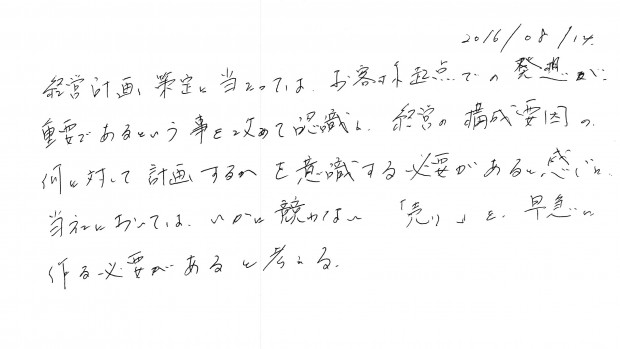 2016/08/14.
経営計画策定に当たっては、お客様起点での発想が
重要であるという事を改めて認識し、経営の構成要因の
何に対して計画するかを意識する必要があると感じた
当社においては、いかに競わない「売り」を、早急に
作る必要があると考える。